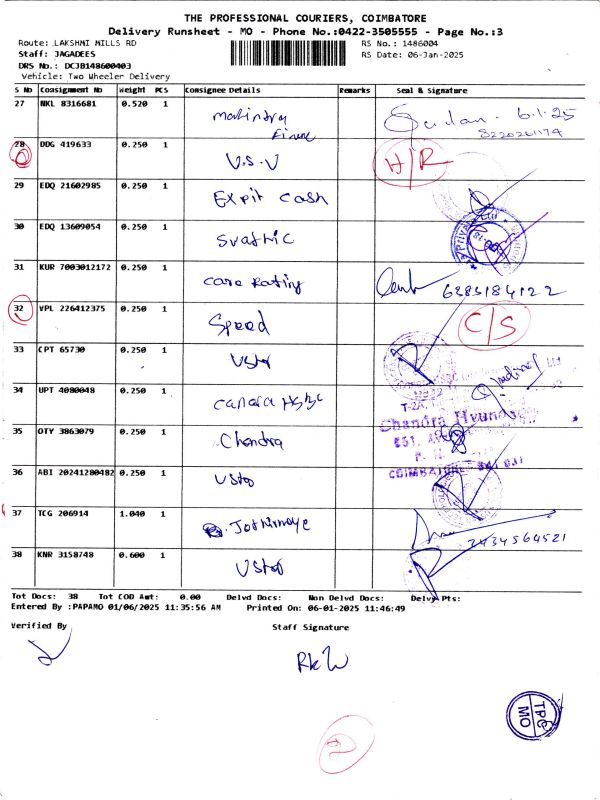 THE PROFESSIONAL COURIERS, COIMBATORE
Delivery Runsheet - MO - Phone No.:0422-3505555 - Page No.:3
Route: .LAKSHMI MILLS RD
RS No.: 1486004
Staff: JAGADEES
RS Date: 06-Jan-2025
DRS No.: DCJB148600403
Vehicle: Two Wheeler Delivery
S No Consignment No Weight PCS Consignee Details Remarks Seal & Signature
27 NKL 8316681 0.520 1 Mahindra Finance 6.1.25
28 DDG 419633 0.250 1 U.S.V H/R
29 EDQ 21602985 0.250 1 Expit cash
30 EDQ 13609054 0.250 1 Svathic
31 KUR 7003012172 0.250 1 care Rating 6385184122
32 VPL 226412375 0.250 1 Speed C/S
33 CPT 65730 0.250 1 Ustop
34 UPT 4080048 0.250 1 canara
35 OTY 3863079 0.250 1 Chandra Chandra Hyundai
COIMBATORE
36 ABI 20241280482 0.250 1 Ustop
37 TCG 206914 1.040 1 2434564521
38 KNR 3158748 0.600 1 Ustop
Tot Docs: 38 Tot COD Amt: 0.00 Delvd Docs: Non Delvd Docs: Delvy Pts:
Entered By :PAPAMO 01/06/2025 11:35:56 AM Printed On: 06-01-2025 11:46:49
Verified By Staff Signature
TPC
MO